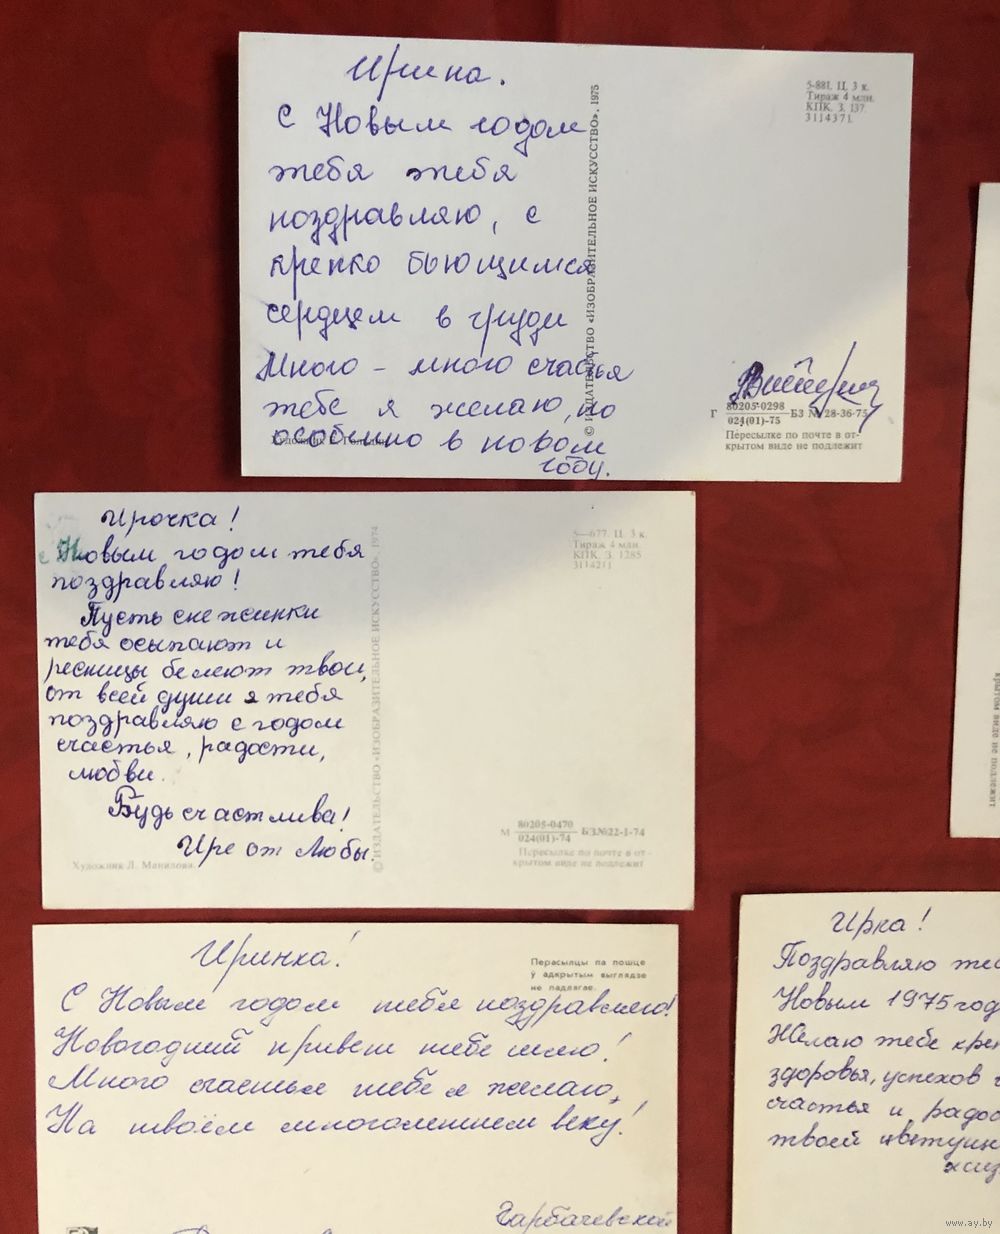 Ирина.
С Новым годом
тебя тебя
поздравляю, с
крепко бьющимся
сердцем в груди
Много - много счастья
тебе я желаю, но
особенно в новом
году.
© ИЗДАТЕЛЬСТВО «ИЗОБРАЗИТЕЛЬНОЕ ИСКУССТВО», 1975
5-881. Ц. 3 к.
Тираж 4 млн.
КПК. З. 137.
3114371.
Г 80205-0298 БЗ № 28-36-75
024(01)-75
Пересылке по почте в от-
крытом виде не подлежит
Художник
Ирочка!
с Новым годом тебя
поздравляю!
Пусть снежинки
тебя осыпают и
ресницы белеют твои,
от всей души я тебя
поздравляю с годом
счастья, радости,
любви.
Будь счастлива!
Ире от Любы.
Художник Л. Манилова.
© ИЗДАТЕЛЬСТВО «ИЗОБРАЗИТЕЛЬНОЕ ИСКУССТВО», 1974
5—677. Ц. 3 к.
Тираж 4 млн.
КПК. З. 1285
3114211
М 80205-0470 БЗ№22-1-74
024(01)-74
Пересылке по почте в от-
крытом виде не подлежит
крытом виде не подлежит
Иринка!
Перасылцы па пошце
ў адкрытым выглядзе
не падлягае.
С Новым годом тебя поздравляю!
Новогодний привет тебе шлю!
Много счастья тебе я желаю,
На твоём многолетнем веку!
Гарбачевской
Ирка!
Поздравляю
Новым 1975 год
Желаю тебе
здоровья, успехов
счастья и
твоей
www.ay.by